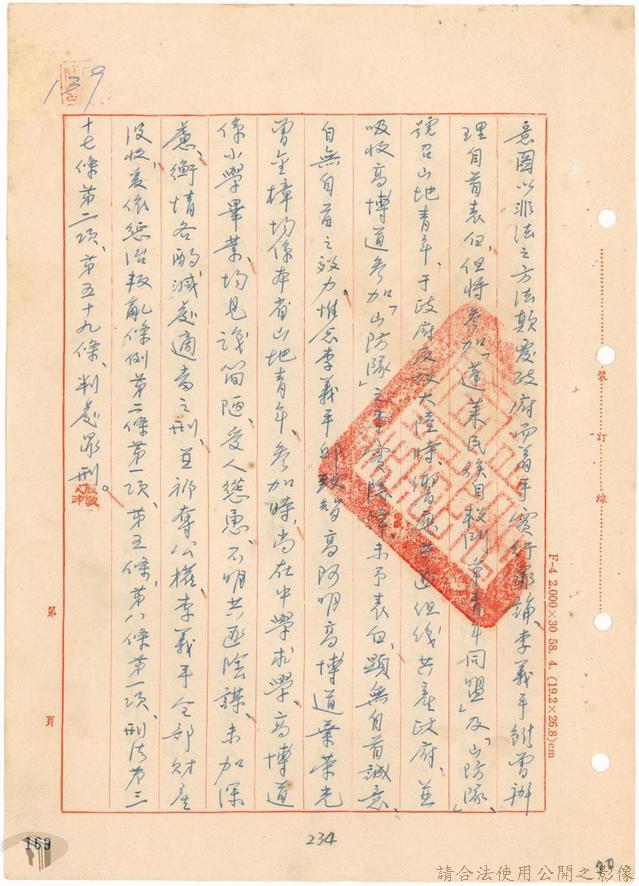 意圖以非法之方法顛覆政府而著手實行罪論、李義平雖曾辦
理自首表白、但將參加「蓬萊民族自救鬥爭青年同盟」及「山防隊」、
號召山地青年、于政府反攻大陸時、響應共匪組織共產政府、並
吸收高博道參加「山防隊」之事實隱諱未予表白、顯無自首誠意、
自無自首之效力惟念李義平 高阿明高博道葉榮光
曾金樟均係本省山地青年、參加時、尚在中學求學、高博道
係小學畢業、均見識簡陋、受人慫恿、不明共匪陰謀、未加深
慮、衡情各酌減處適當之刑、並褫奪公權李義平全部財產
沒收、爰依懲治叛亂條例第二條第一項、第五條、第八條第一項、刑法第三
十七條第二項、第五十九條、判處罪刑。
第 頁
裝 訂 線
F-4 2,000×30 58. 4. (19.2×26.8)cm
139
169
234
請合法使用公開之影像